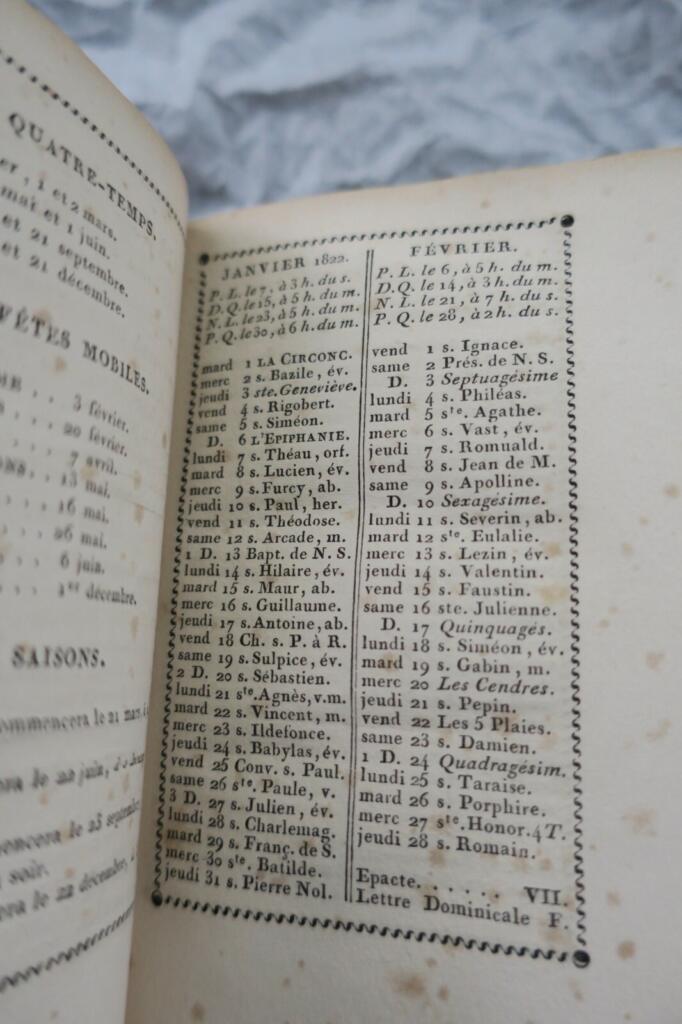 QUATRE-TEMPS.
1 et 2 mars.
mai et 1 juin.
et 21 septembre.
et 21 décembre.
FÊTES MOBILES.
3 février.
20 février.
7 avril.
13 mai.
16 mai.
26 mai.
6 juin.
1er décembre.
SAISONS.
commencera le 21 mars, à
le 22 juin, à
le 23 septembre
soir.
le 22 décembre, à
JANVIER 1822.
P. L. le 7, à 3 h. du s.
D. Q. le 15, à 5 h. du m.
N. L. le 23, à 5 h. du m.
P. Q. le 30, à 6 h. du m.
mard 1 LA CIRCONC.
merc 2 s. Bazile, év.
jeudi 3 ste. Geneviève.
vend 4 s. Rigobert.
same 5 s. Siméon.
D. 6 L'EPIPHANIE.
lundi 7 s. Théau, orf.
mard 8 s. Lucien, év.
merc 9 s. Furcy, ab.
jeudi 10 s. Paul, her.
vend 11 s. Théodose.
same 12 s. Arcade, m.
1 D. 13 Bapt. de N. S.
lundi 14 s. Hilaire, év.
mard 15 s. Maur, ab.
merc 16 s. Guillaume.
jeudi 17 s. Antoine, ab.
vend 18 Ch. s. P. à R.
same 19 s. Sulpice, év.
2 D. 20 s. Sébastien.
lundi 21 ste. Agnès, v.m.
mard 22 s. Vincent, m.
merc 23 s. Ildefonce.
jeudi 24 s. Babylas, év.
vend 25 Conv. s. Paul.
same 26 ste. Paule, v.
3 D. 27 s. Julien, év.
lundi 28 s. Charlemag.
mard 29 s. Franç. de S.
merc 30 ste. Batilde.
jeudi 31 s. Pierre Nol.
FÉVRIER.
P. L. le 6, à 5 h. du m.
D. Q. le 14, à 3 h. du m.
N. L. le 21, à 7 h. du s.
P. Q. le 28, à 2 h. du s.
vend 1 s. Ignace.
same 2 Prés. de N. S.
D. 3 Septuagésime
lundi 4 s. Philéas.
mard 5 ste. Agathe.
merc 6 s. Vast, év.
jeudi 7 s. Romuald.
vend 8 s. Jean de M.
same 9 s. Apolline.
D. 10 Sexagésime.
lundi 11 s. Severin, ab.
mard 12 ste. Eulalie.
merc 13 s. Lezin, év.
jeudi 14 s. Valentin.
vend 15 s. Faustin.
same 16 ste. Julienne.
D. 17 Quinquagés.
lundi 18 s. Siméon, év.
mard 19 s. Gabin, m.
merc 20 Les Cendres.
jeudi 21 s. Pepin.
vend 22 Les 5 Plaies.
same 23 s. Damien.
1 D. 24 Quadragésim.
lundi 25 s. Taraise.
mard 26 s. Porphire.
merc 27 ste. Honor. 4 T.
jeudi 28 s. Romain.
Epacte. . . . . . . VII.
Lettre Dominicale F.